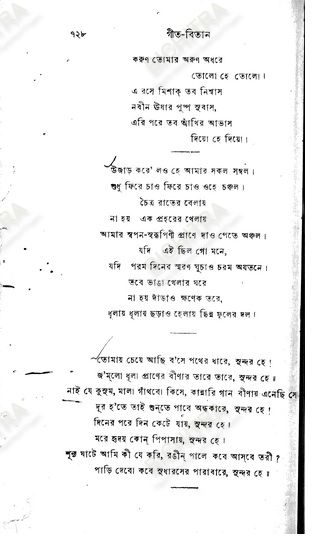 ৭২৮ গীত-বিতান
করুণ তোমার অরুণ অধরে
তোলো হে তোলো।
এ রসে মিশাক্ তব নিশ্বাস
নবীন ঊষার পুষ্প সুবাস,
এরি পরে তব আঁখির আভাস
দিয়ো হে দিয়ো।
উজাড় করে' লও হে আমার সকল সম্বল।
শুধু ফিরে চাও ফিরে চাও ওহে চঞ্চল।
চৈত্র রাতের বেলায়
না হয় এক প্রহরের খেলায়
আমার স্বপন-স্বরূপিণী প্রাণে দাও পেতে অঞ্চল।
যদি এই ছিল গো মনে,
যদি পরম দিনের স্মরণ ঘুচাও চরম অযতনে।
তবে ভাঙা খেলার ঘরে
না হয় দাঁড়াও ক্ষণেক তরে,
ধূলায় ধূলায় ছড়াও হেলায় ছিন্ন ফুলের দল।
তোমায় চেয়ে আছি ব'সে পথের ধারে, সুন্দর হে!
জ'ম্‌লো ধূলা প্রাণের বীণার তারে তারে, সুন্দর হে॥
নাই যে কুসুম, মালা গাঁথবো কিসে, কান্নারি গান বীণায় এনেছি সে
দূর হ'তে তাই শুন্‌তে পাবে অন্ধকারে, সুন্দর হে!
দিনের পরে দিন কেটে যায়, সুন্দর হে।
মরে হৃদয় কোন্ পিপাসায়, সুন্দর হে।
শূন্য ঘাটে আমি কী যে করি, রঙীন পালে কবে আস্‌বে তরী?
পাড়ি দেবো কবে সুধারসের পারাবারে, সুন্দর হে॥